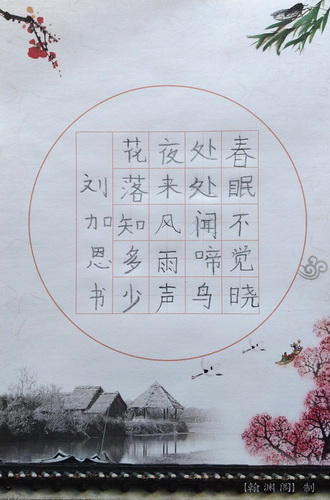 春眠不觉晓
处处闻啼鸟
夜来风雨声
花落知多少
刘加恩书
【翰渊阁】制